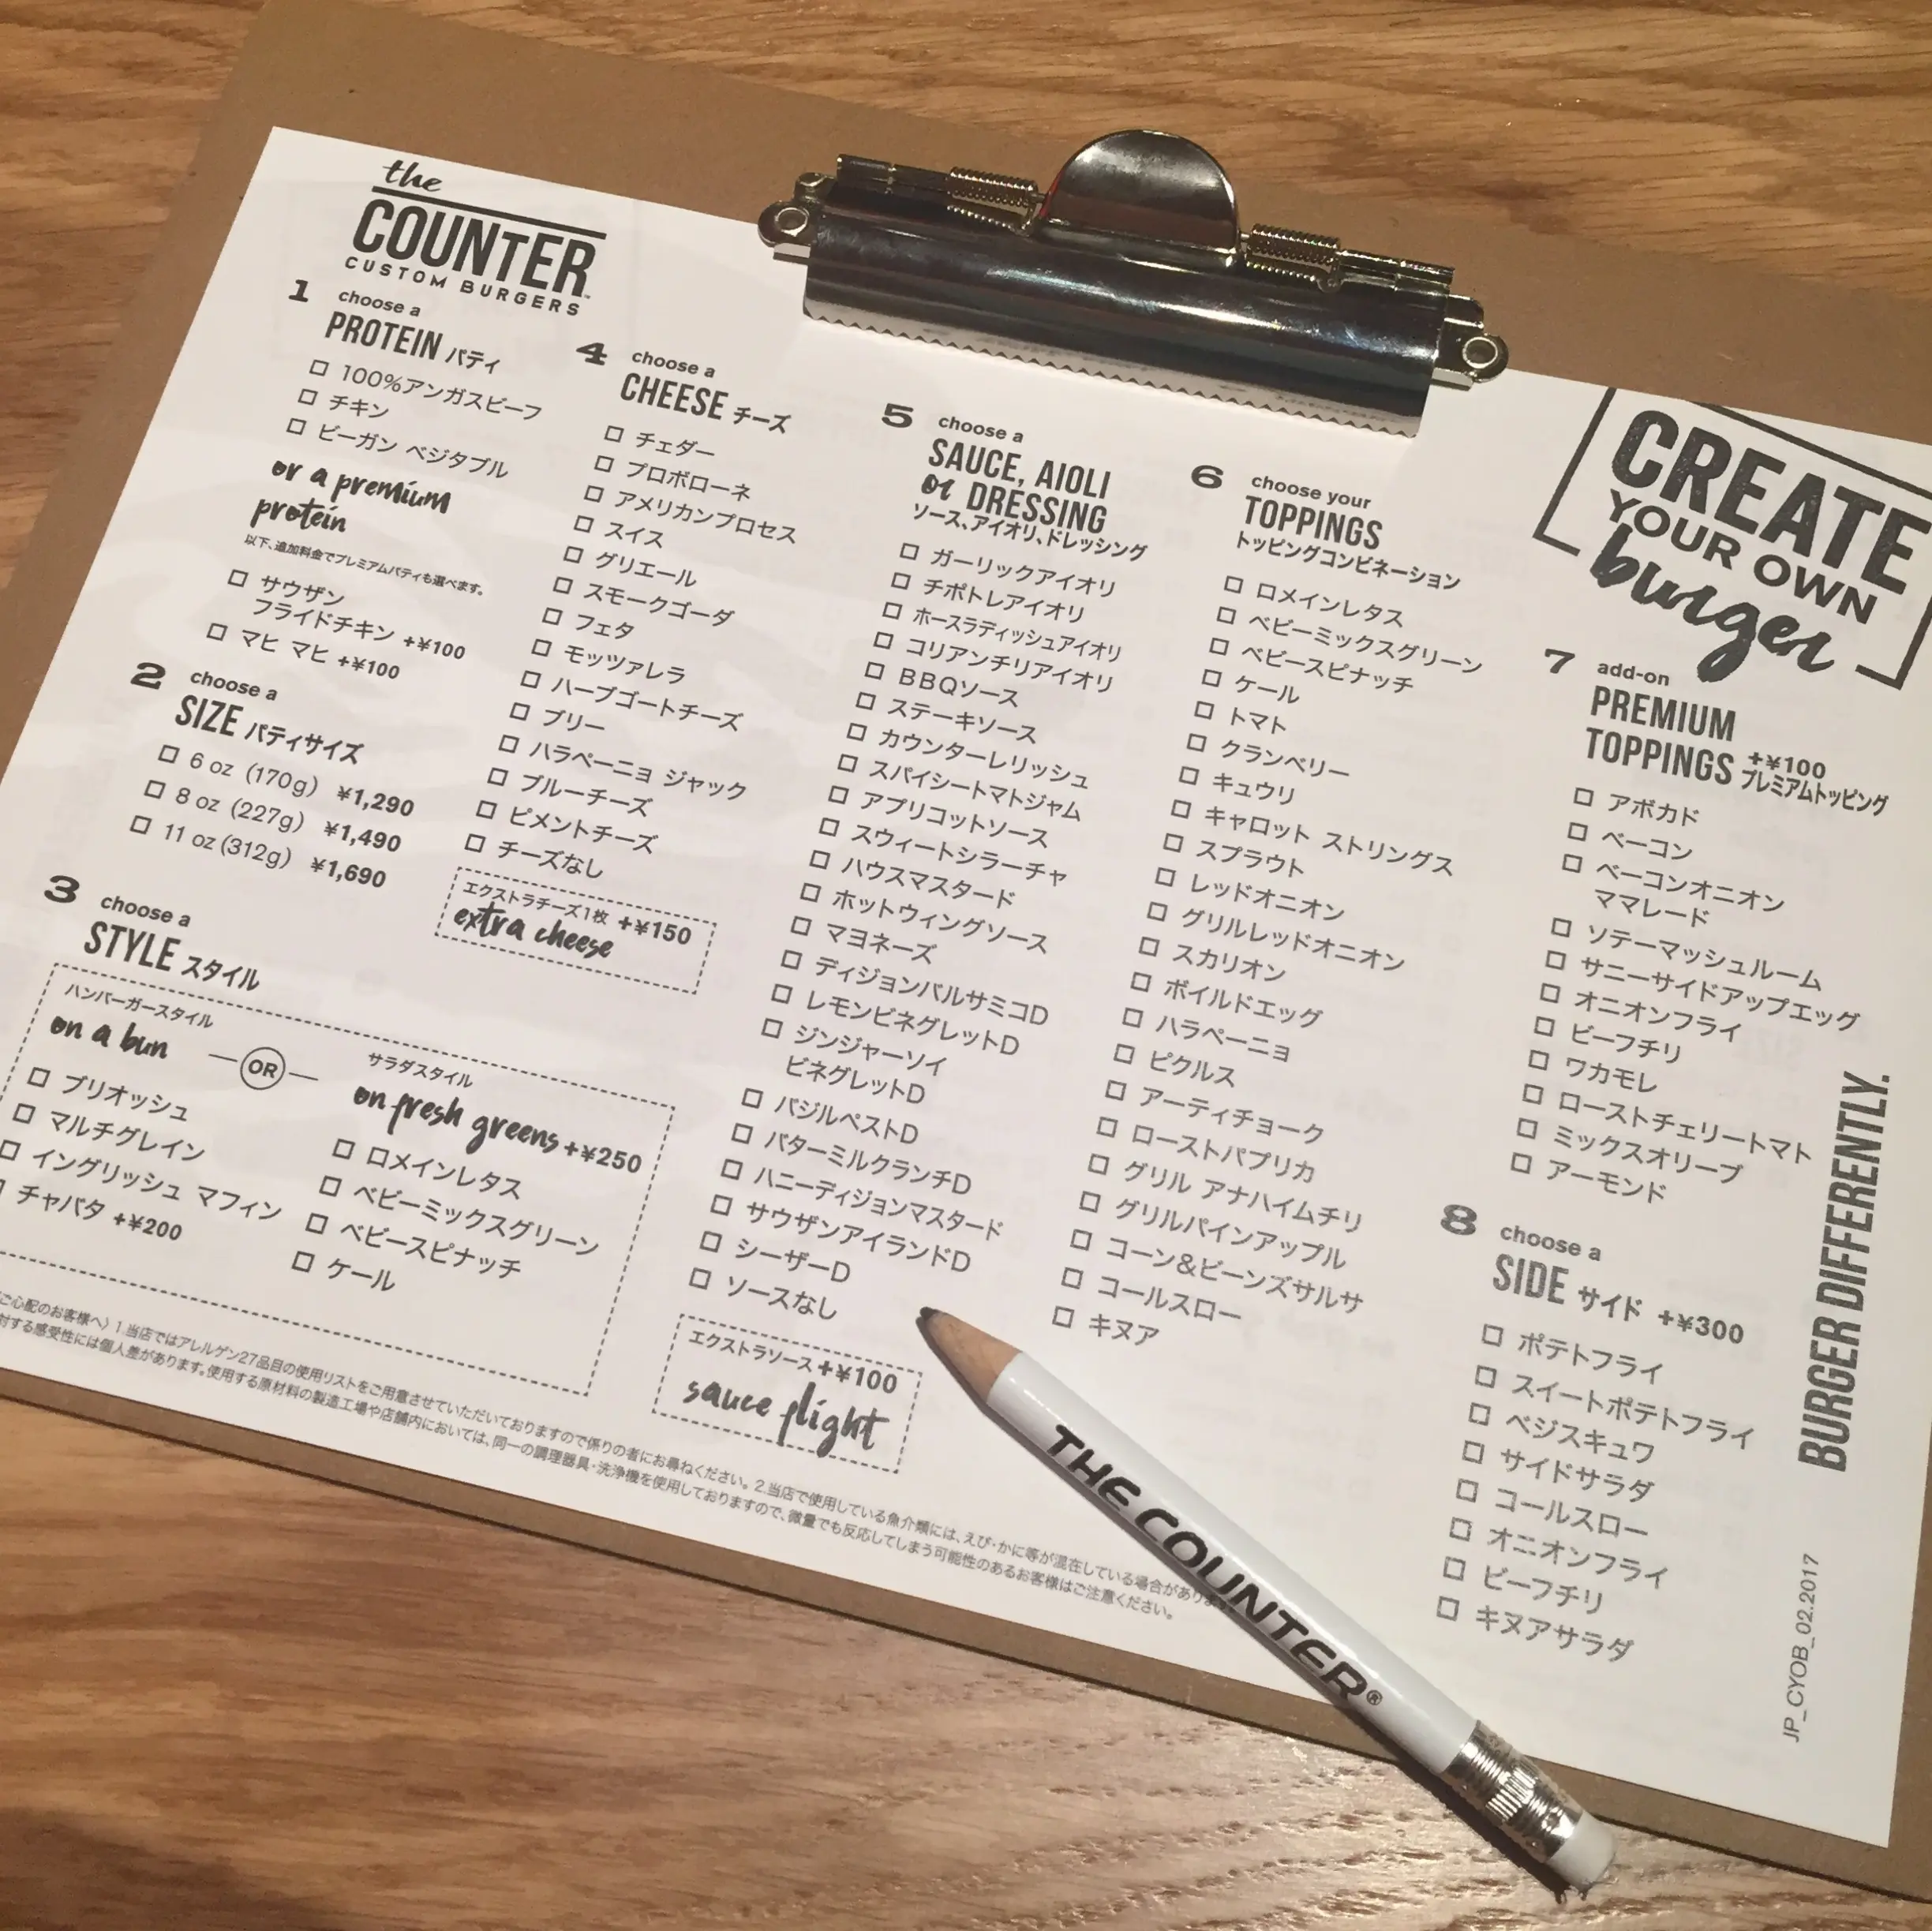 the
COUNTER
CUSTOM BURGERS™
1 choose a
PROTEIN パティ
100%アンガスビーフ
チキン
ビーガン ベジタブル
or a premium
protein
以下、追加料金でプレミアムパティも選べます。
サウザン
フライドチキン +¥100
マヒ マヒ +¥100
2 choose a
SIZE パティサイズ
6 oz (170g) ¥1,290
8 oz (227g) ¥1,490
11 oz (312g) ¥1,690
3 choose a
STYLE スタイル
ハンバーガースタイル
on a bun
ブリオッシュ
マルチグレイン
イングリッシュ マフィン
チャバタ +¥200
OR
サラダスタイル
on fresh greens +¥250
ロメインレタス
ベビーミックスグリーン
ベビースピナッチ
ケール
4 choose a
CHEESE チーズ
チェダー
プロボローネ
アメリカンプロセス
スイス
グリエール
スモークゴーダ
フェタ
モッツァレラ
ハーブゴートチーズ
ブリー
ハラペーニョ ジャック
ブルーチーズ
ピメントチーズ
チーズなし
エクストラチーズ1枚 +¥150
extra cheese
5 choose a
SAUCE, AIOLI
or DRESSING
ソース、アイオリ、ドレッシング
ガーリックアイオリ
チポトレアイオリ
ホースラディッシュアイオリ
コリアンチリアイオリ
BBQソース
ステーキソース
カウンターレリッシュ
スパイシートマトジャム
アプリコットソース
スウィートシラーチャ
ハウスマスタード
ホットウィングソース
マヨネーズ
ディジョンバルサミコD
レモンビネグレットD
ジンジャーソイ
ビネグレットD
バジルペストD
バターミルクランチD
ハニーディジョンマスタード
サウザンアイランドD
シーザーD
ソースなし
エクストラソース +¥100
sauce flight
6 choose your
TOPPINGS
トッピングコンビネーション
ロメインレタス
ベビーミックスグリーン
ベビースピナッチ
ケール
トマト
クランベリー
キュウリ
キャロット ストリングス
スプラウト
レッドオニオン
グリルレッドオニオン
スカリオン
ボイルドエッグ
ハラペーニョ
ピクルス
アーティチョーク
ローストパプリカ
グリル アナハイムチリ
グリルパインアップル
コーン&ビーンズサルサ
コールスロー
キヌア
CREATE
YOUR OWN
burger
7 add-on
PREMIUM
TOPPINGS +¥100
プレミアムトッピング
アボカド
ベーコン
ベーコンオニオン
ママレード
ソテーマッシュルーム
サニーサイドアップエッグ
オニオンフライ
ビーフチリ
ワカモレ
ローストチェリートマト
ミックスオリーブ
アーモンド
8 choose a
SIDE サイド +¥300
ポテトフライ
スイートポテトフライ
ベジスキュワ
サイドサラダ
コールスロー
オニオンフライ
ビーフチリ
キヌアサラダ
BURGER DIFFERENTLY.
JP_CYOB_02.2017
ご心配のお客様へ〉1.当店ではアレルゲン27品目の使用リストをご用意させていただいておりますので係りの者にお尋ねください。2.当店で使用している魚介類には、えび・かに等が混在している場合があり
対する感受性には個人差があります。使用する原材料の製造工場や店舗内においては、同一の調理器具・洗浄機を使用しておりますので、微量でも反応してしまう可能性のあるお客様はご注意ください。
THE COUNTER®